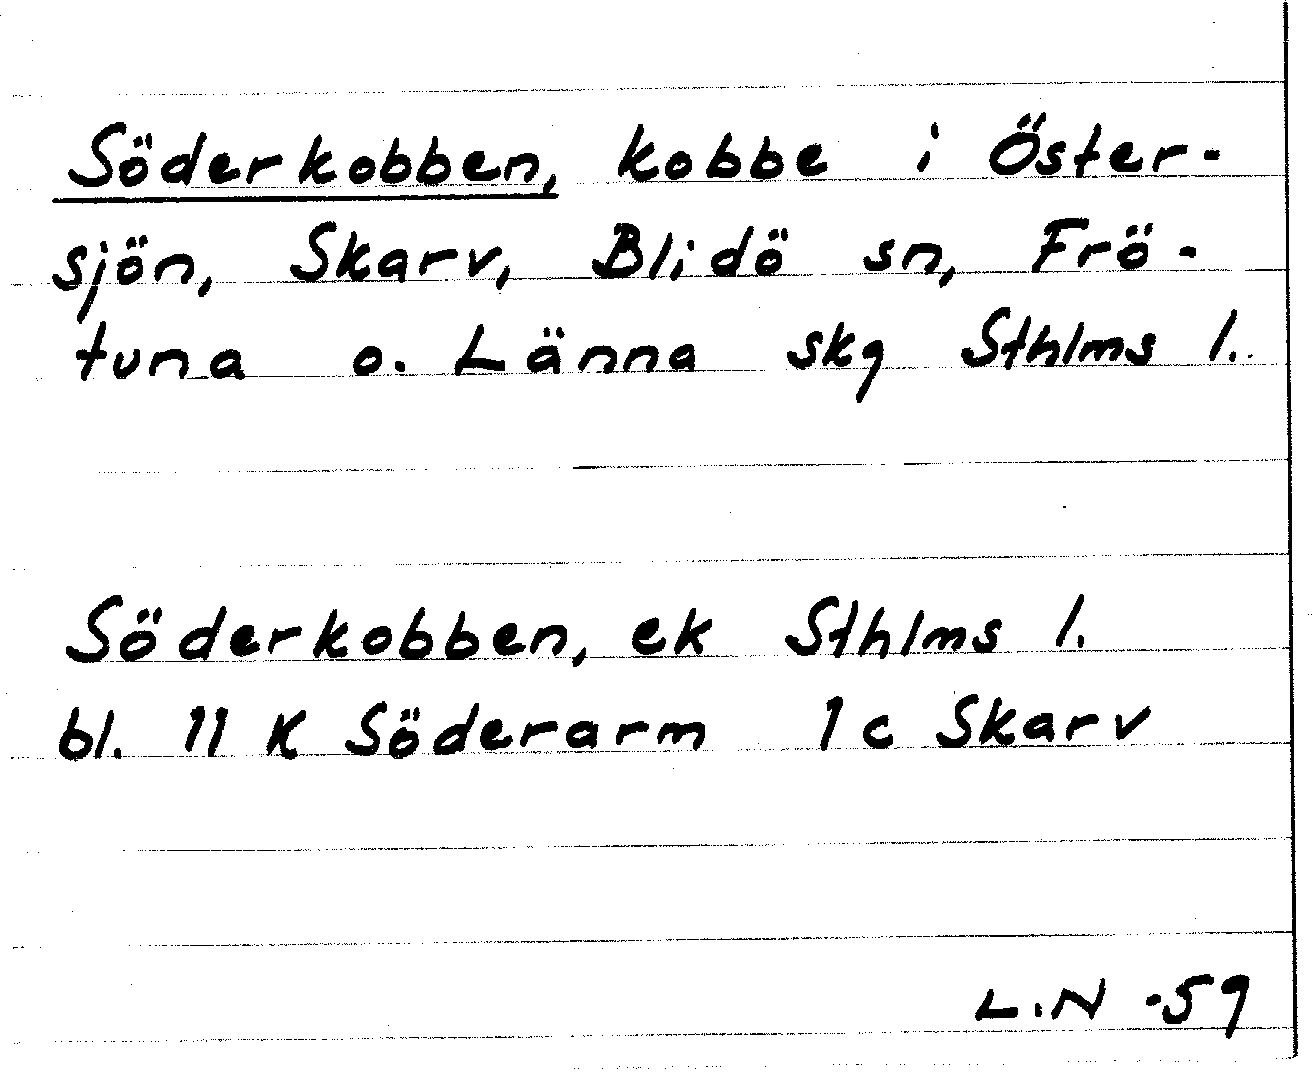 Söderkobben, kobbe i Öster-
sjön, Skarv, Blidö sn, Frö-
tuna o. Länna skg Sthlms l.
Söderkobben, ek Sthlms l.
bl. 11 K Söderarm 1 c Skarv
L.N -59